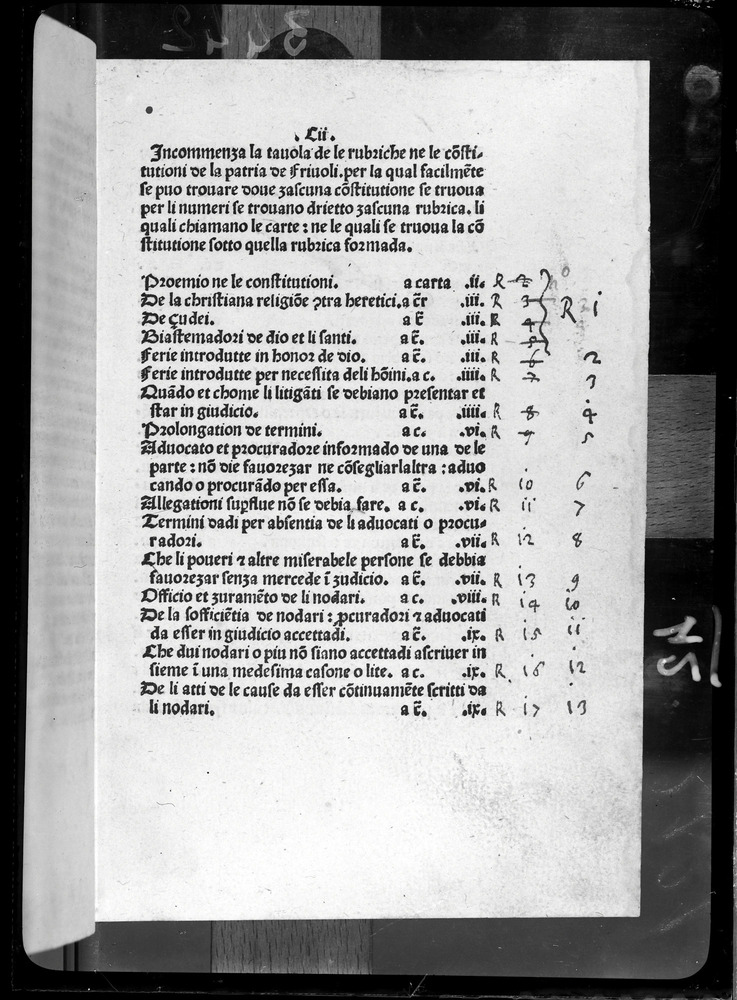 . Cii .
Incommenza la tauola de le rubriche ne le cõsti-
tutioni de la patria de Friuoli. per la qual facilmẽte
se puo trouare doue zascuna cõstitutione se truoua
per li numeri se trouano drietto zascuna rubrica. li
quali chiamano le carte : ne le quali se truoua la cõ
stitutione sotto quella rubrica formada.
Proemio ne le constitutioni. a carta .ii. R 2
De la christiana religiõe ꝯtra heretici. a c̃r .iii. R 3 R i
De Çudei. a c̃ .iii. R 4
Biastemadori de dio et li santi. a c̃. .iii. R 5
Ferie introdutte in honor de dio. a c̃. .iii. R 6 2
Ferie introdutte per necessita deli hõini. a c. .iiii. R 7 3
Quãdo et chome li litigãti se debiano presentar et
star in giudicio. a c̃. .iiii. R 8 4
Prolongation de termini. a c. .vi. R 9 5
Aduocato et procuradore informado de una de le
parte : nõ die fauorezar ne cõsegliarlaltra : aduo
cando o procurãdo per essa. a c̃. .vi. R 10 6
Allegationi suꝑflue nõ se debia fare. a c. .vi. R ii 7
Termini dadi per absentia de li aduocati o procu-
radori. a c̃. .vii. R i2 8
Che li poueri ⁊ altre miserabele persone se debbia
fauorezar senza mercede ĩ zudicio. a c̃. .vii. R i3 9
Officio et zuramẽto de li nodari. a c. .viii. R i4 i0
De la sofficiẽtia de nodari : ꝓcuradori ⁊ aduocati
da esser in giudicio accettadi. a c̃. .ix. R i5 ii
Che dui nodari o piu nõ siano accettadi ascriuer in
sieme ĩ una medesima casone o lite. a c. .ix. R i6 i2
De li atti de le cause da esser cõtinuamẽte scritti da
li nodari. a c̃. .ix. R i7 i3